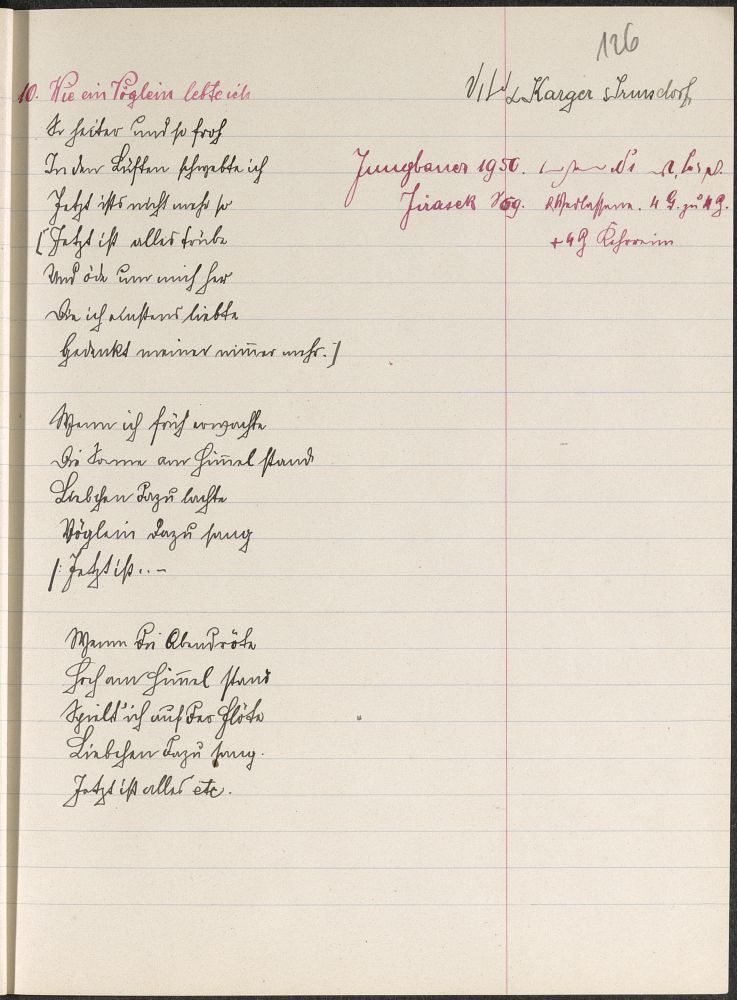 126
10. Wie ein Vöglein lebte ich
Karger
So heiter und so froh
In den Lüften schwebte ich
Jungbauer 1950.
Jetzt ists nicht mehr so
Jirasek 4 Z. zu 4 Z.
[Jetzt ist alles trübe
+ 4 Z Kehrreim
Und öde um mich her
Die ich einstens liebte
Gedenkt meiner nim̄er mehr.]
Wenn ich früh erwachte
Die Sonne am Him̄el stand
Liebchen dazu lachte
Vöglein dazu sang
/: Jetzt ist..–
Wenn die Abendröte
Hoch am Him̄el stand
Spielt' ich auf der Flöte
Liebchen dazu sang.
Jetzt ist alles etc.